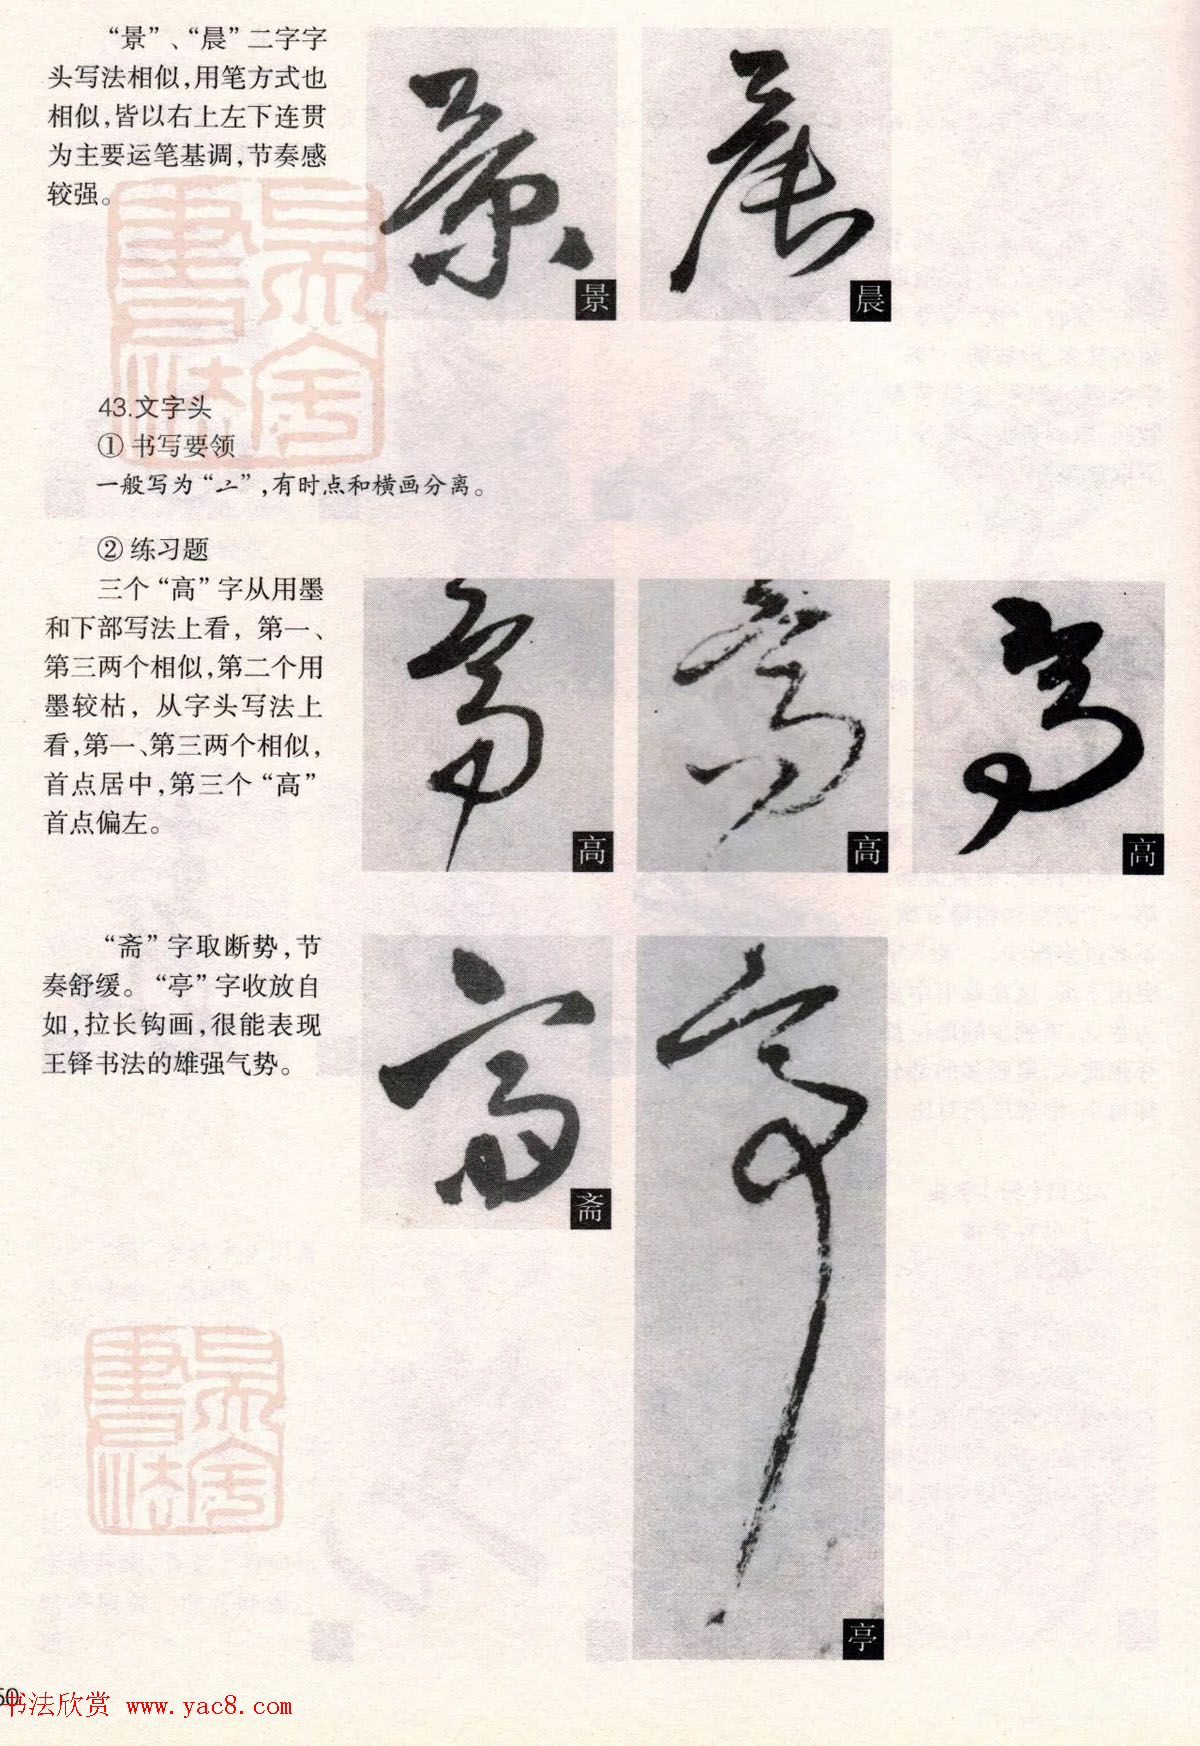 “景”、“晨”二字字
头写法相似,用笔方式也
相似,皆以右上左下连贯
为主要运笔基调,节奏感
较强。
景
晨
43.文字头
① 书写要领
一般写为“亠”,有时点和横画分离。
② 练习题
三个“高”字从用墨
和下部写法上看,第一、
第三两个相似,第二个用
墨较枯,从字头写法上
看,第一、第三两个相似,
首点居中,第三个“高”
首点偏左。
高
高
高
“斋”字取断势,节
奏舒缓。“亭”字收放自
如,拉长钩画,很能表现
王铎书法的雄强气势。
斋
亭
书法欣赏 www.yac8.com